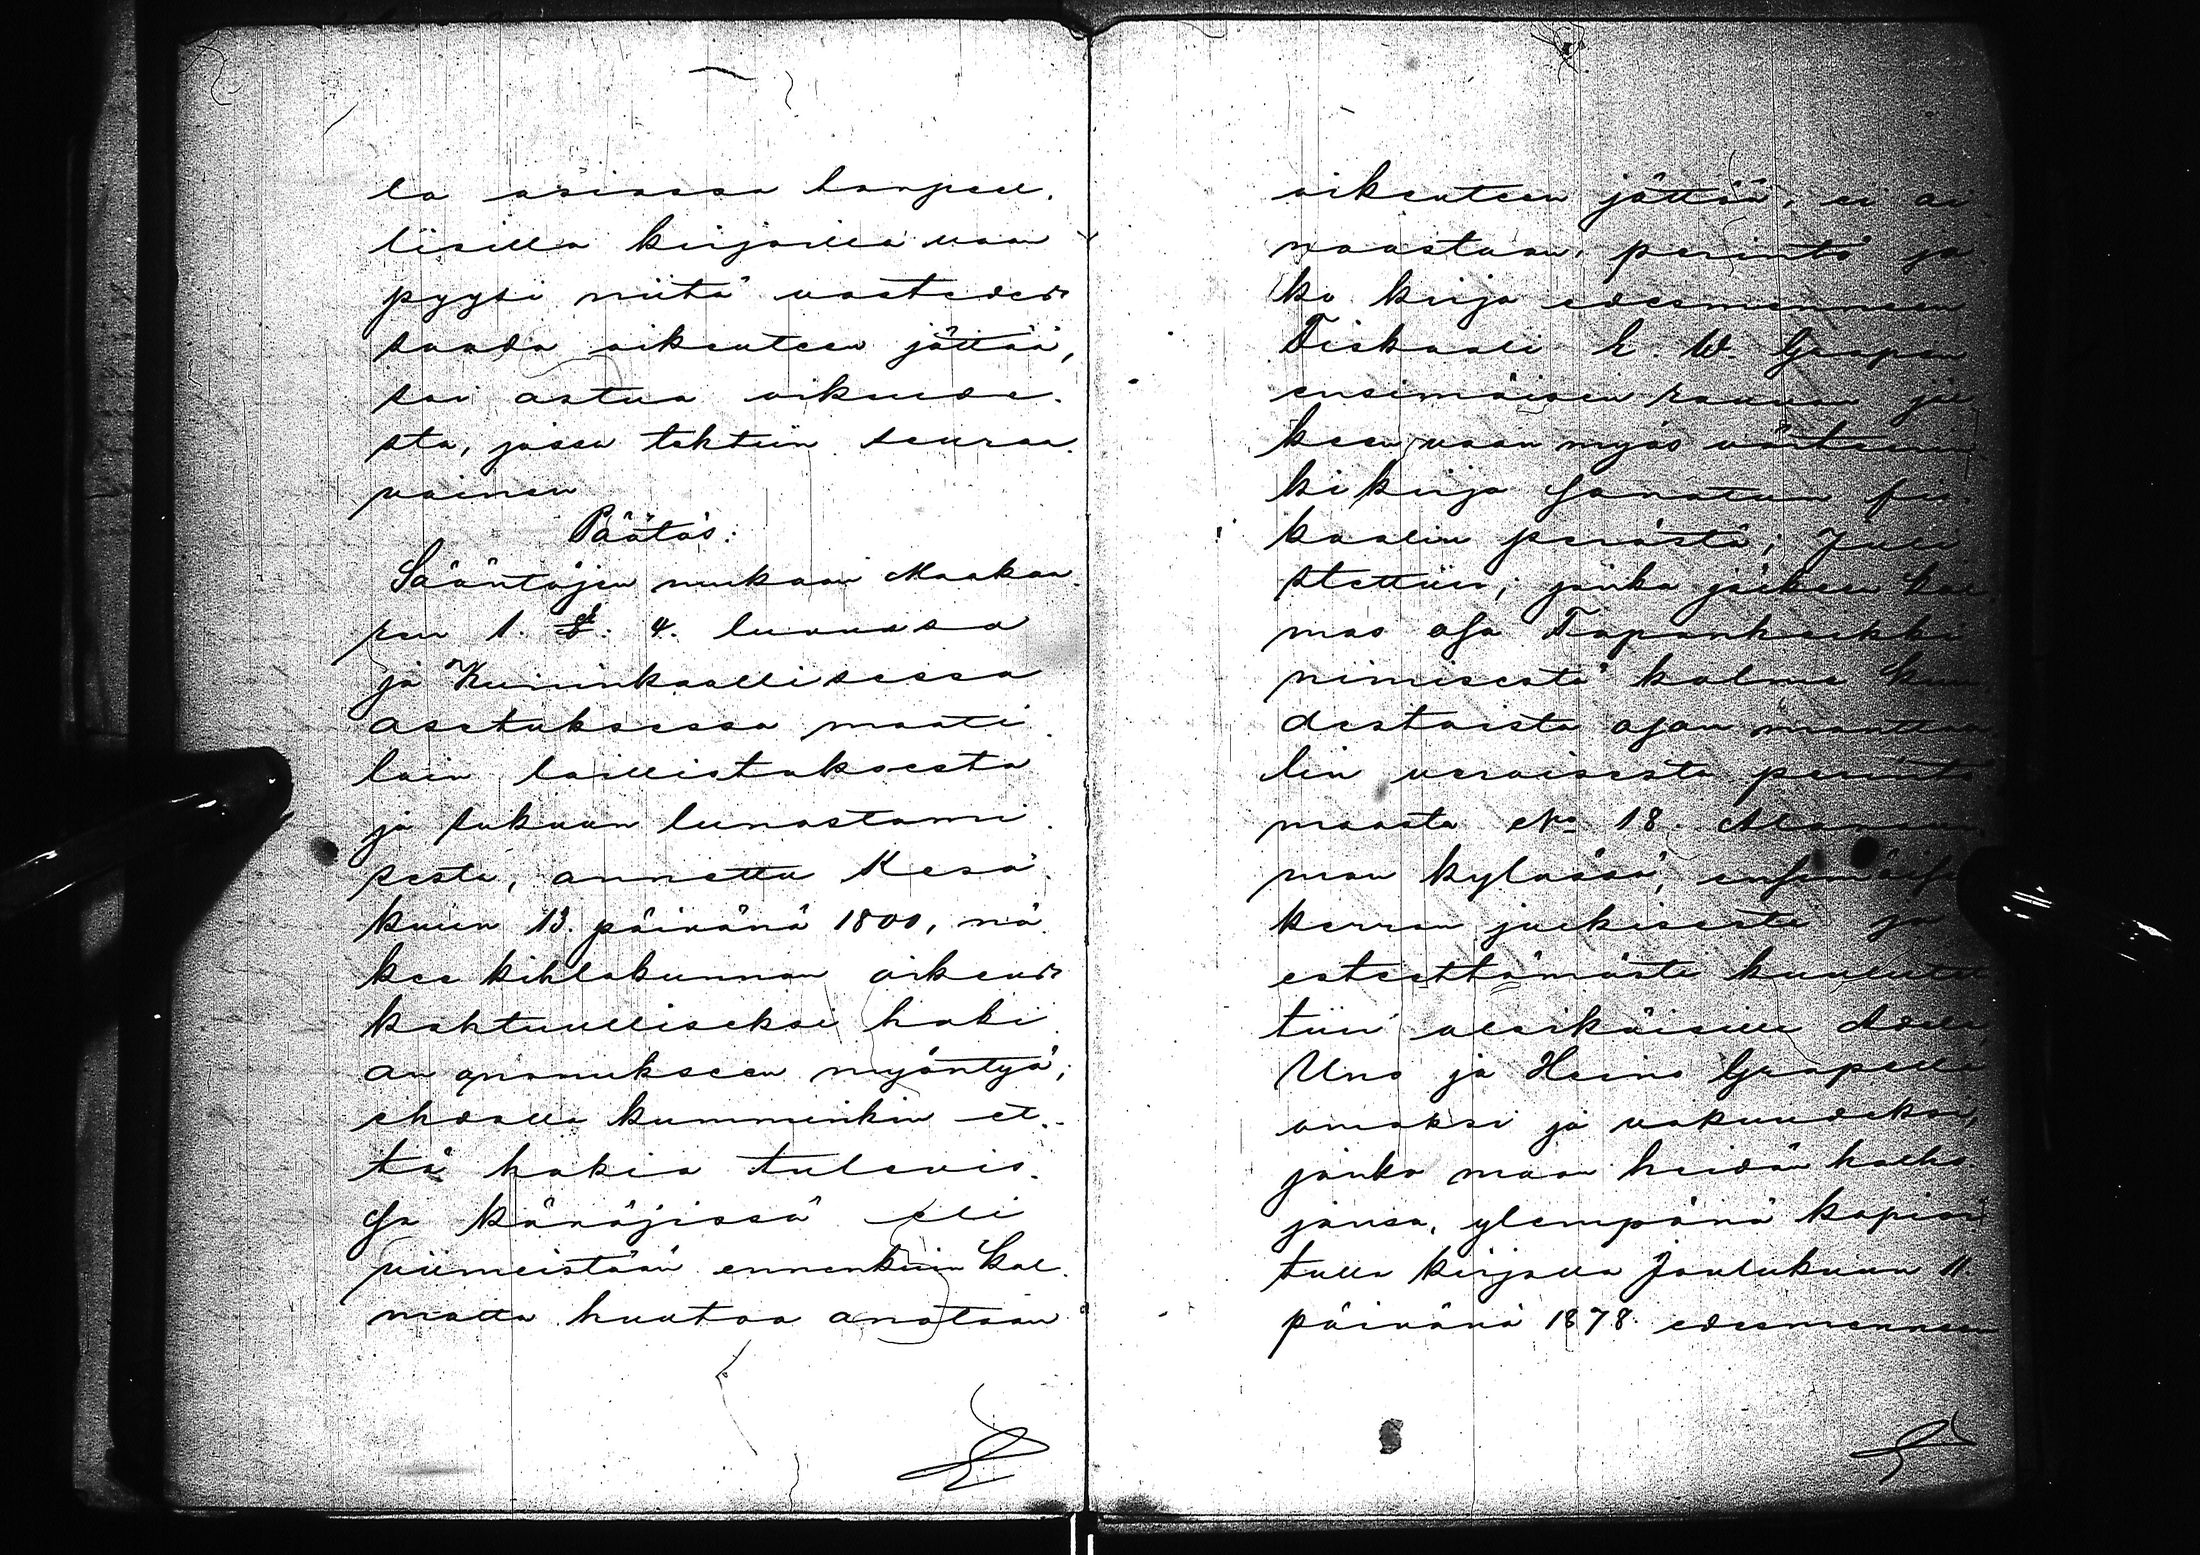 la asiassa tarpeel.
lisilla kirjoilla vaan
pyysi niitä vastedes
saada oikeuteen jättää,
sai astua oikeude.
sta, jossa tehtiin seuraa.
vainen
Päätös:
Sääntöjen mukaan Maakaa.
ren 1. §. 4. luvussa
ja Kuninkaallisessa
asetuksessa maati.
lain laillistuksesta
ja sukuun lunastami.
sesta, annettu Kesä.
kuun 13. päivänä 1800, nä.
kee kihlakunnan oikeus
kohtuulliseksi haki.
an anomukseen myöntyä;
ehdolla kumminkin et.
tä hakia tulevis.
sa käräjissä eli
viimeistään ennenkuin kol.
matta huutoa anotaan
oikeuteen jättää, ei ai.
noastaan, perintö ja.
ko kirja edesmenneen
Fiskaali E. W. Grapen
ensimäisen rouvan jäl.
keen vaan myös värteerin.
ki kirja sanotun fis.
kaalin perästä; Juli.
stettiin; jonka jälkeen kol.
mas osa Tapanheikki
nimisestä kolme kuu.
destoista osan manttaa.
lin veroisesta perintö
maasta No 18. Alavaan.
man kylässä, ensimäisen
kerran julkisesti ja
esteettömästi kuulutet.
tiin alaikäisille Adele,
Uno ja Heino Grapelle
omaksi ja vakuudeksi,
jonka maan heidän holho.
jansa, ylempänä kopioi.
tulla kirjalla Joulukuun 11.
päivänä 1878. edesmenneen